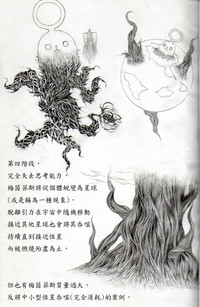 第四階段，
完全失去思考能力，
梅茵菲斯將從個體蛻變為星球
(或是稱為一種現象)，
脫離引力在宇宙中隨機移動
接近其他星球也會將其吞噬
持續直到接近恆星
而被燃燒殆盡為止，
但也有梅茵菲斯質量過大，
反將中小型恆星吞噬(完全消耗)的案例。